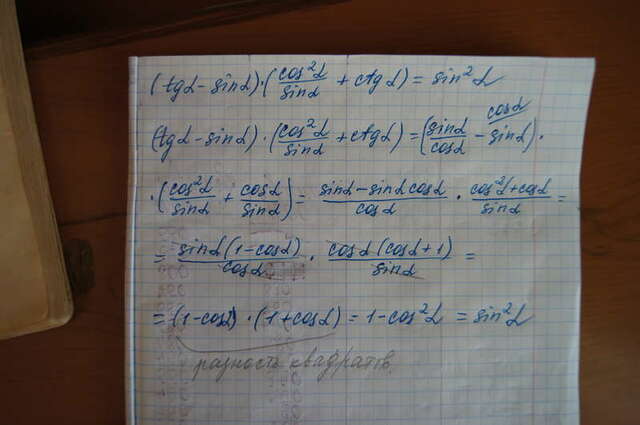 (tgα - sinα)·(cos²α/sinα + ctgα) = sin²α
(tgα - sinα)·(cos²α/sinα + ctgα) = (sinα/cosα - sinα^cosα)·
·(cos²α/sinα + cosα/sinα) = (sinα - sinα cosα)/cosα · (cos²α + cosα)/sinα =
= sinα(1 - cosα)/cosα · cosα(cosα + 1)/sinα =
= (1 - cosα)·(1 + cosα) = 1 - cos²α = sin²α
разность квадратів.